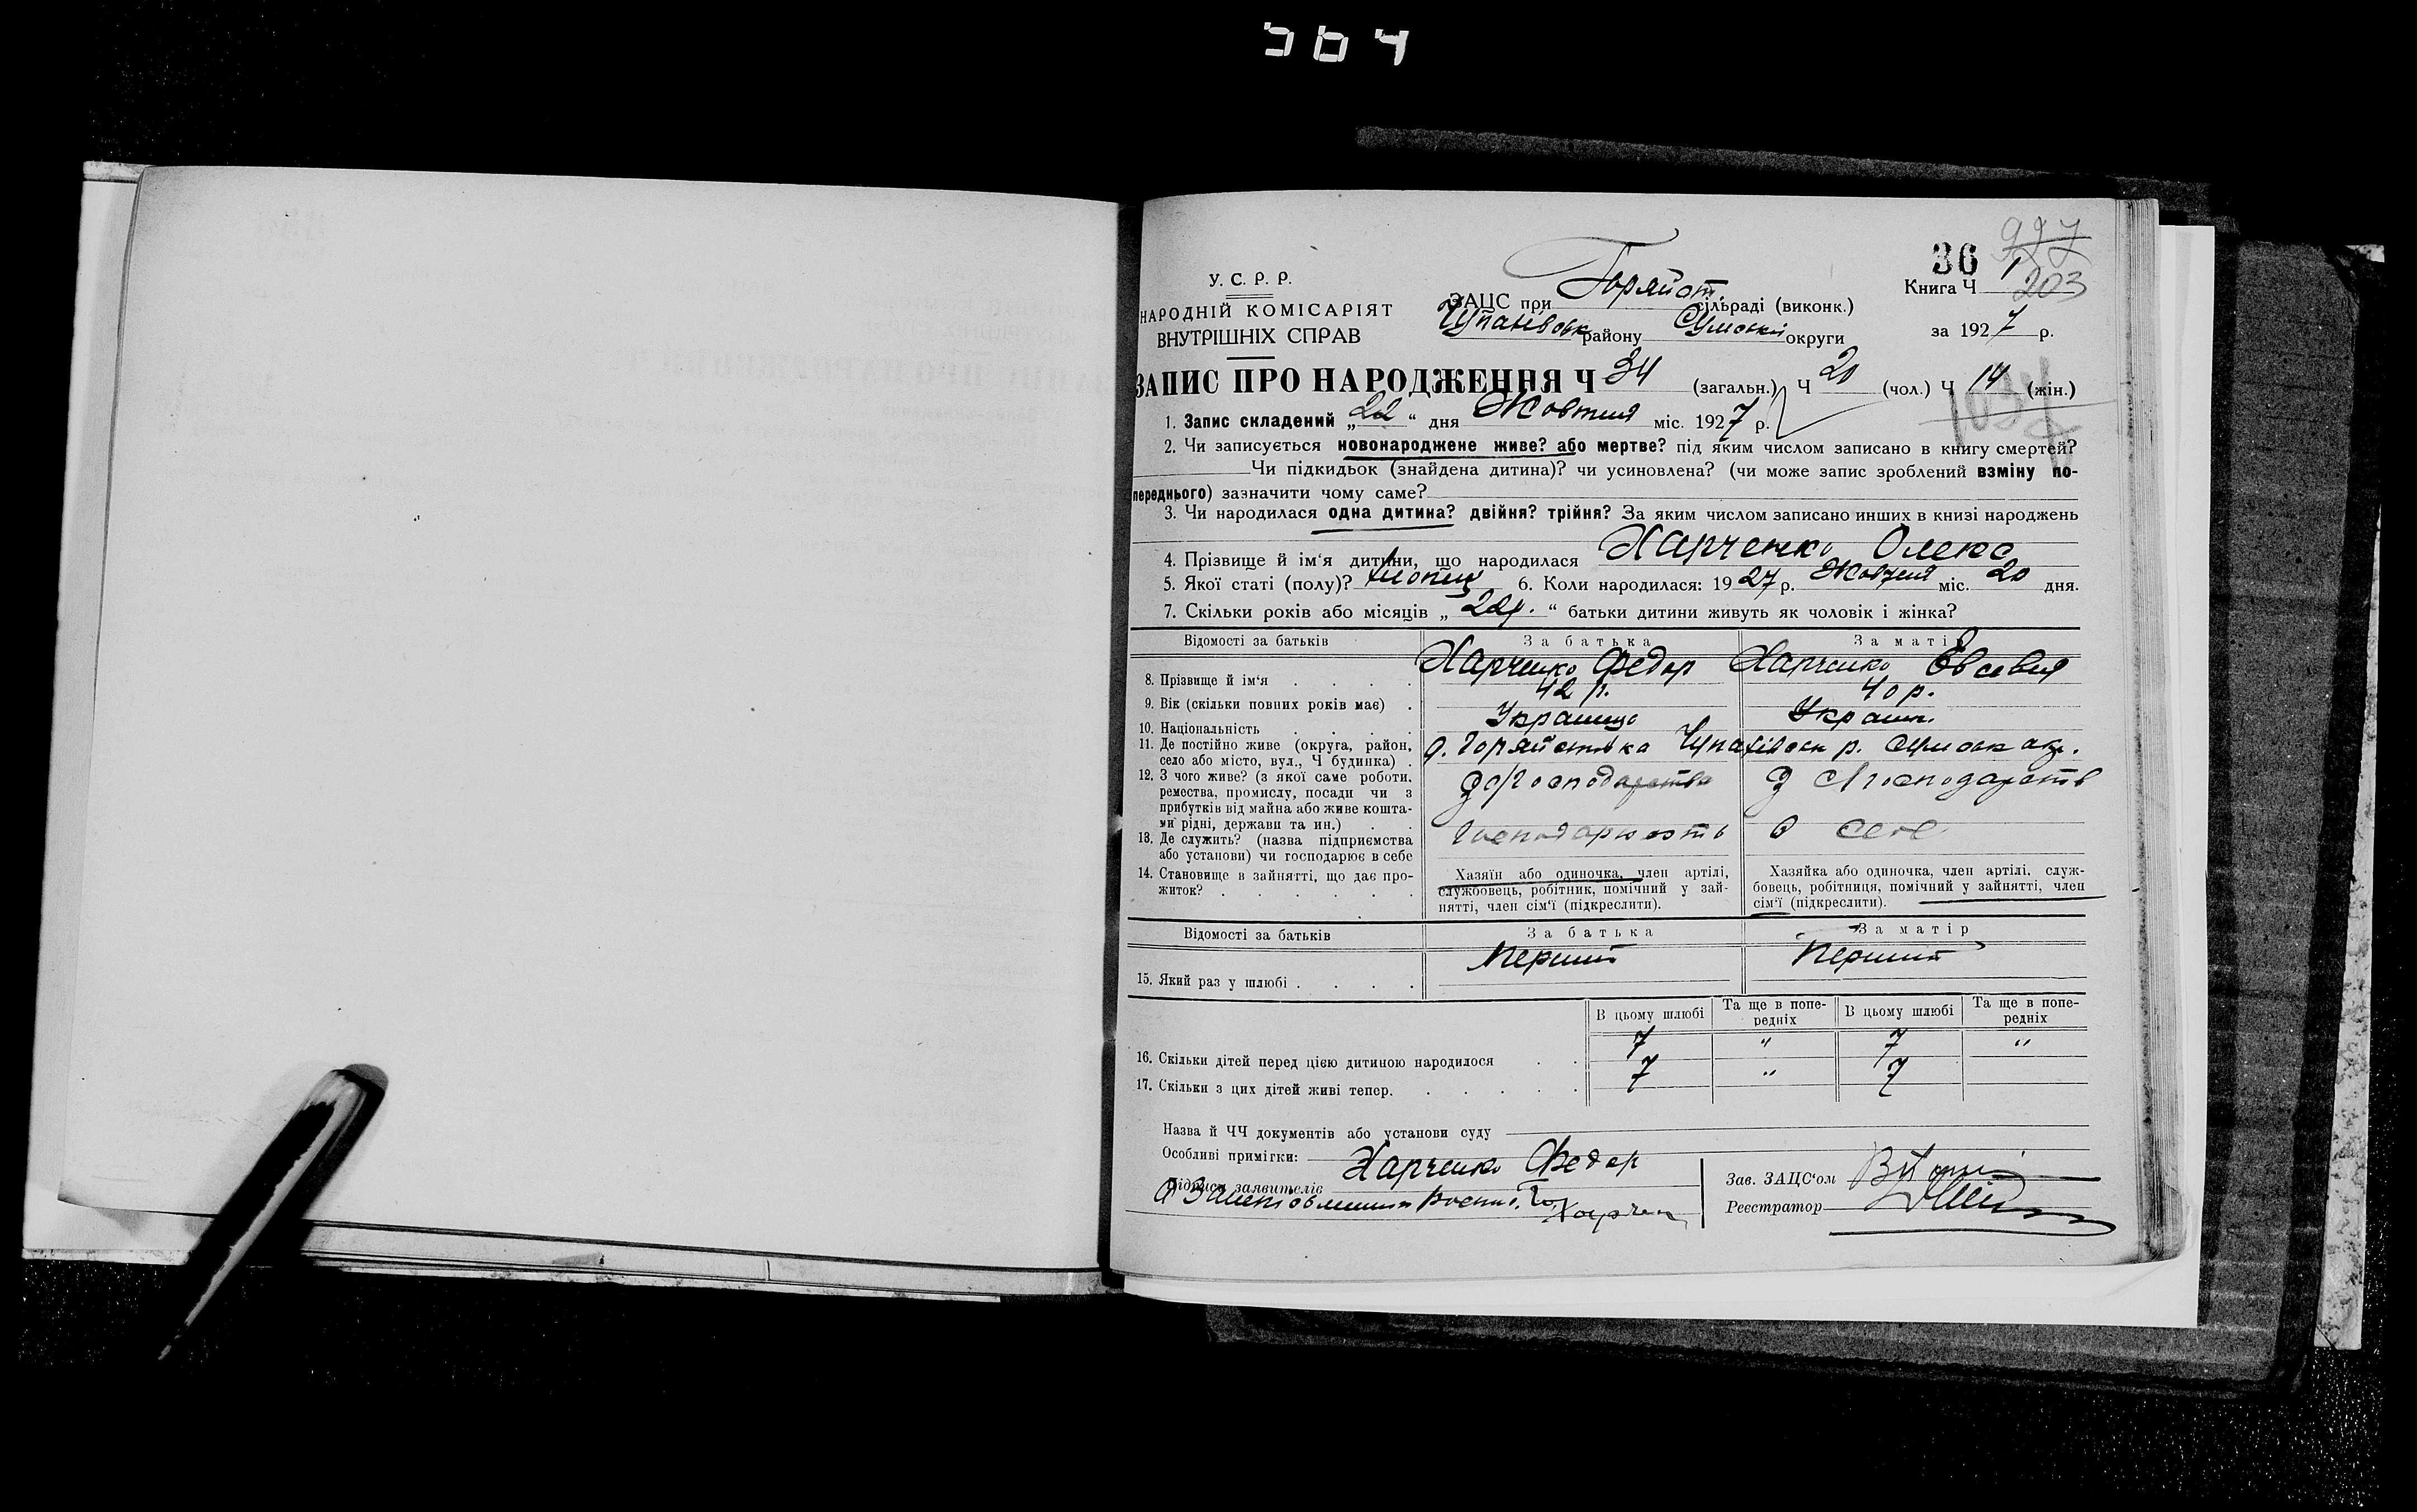 364
36 997
У. С. Р. Р.
НАРОДНІЙ КОМІСАРІЯТ
ВНУТРІШНІХ СПРАВ
ЗАЦС при Горяйст. сільраді (виконк.)
Чупахівськ району Сумської округи
Книга Ч 1 203
за 1927 р.
ЗАПИС ПРО НАРОДЖЕННЯ Ч 34 (загальн.) Ч 20 (чол.) Ч 14 (жін.)
1. Запис складений „22“ дня Жовтня міс. 1927 р.
2. Чи записується новонароджене живе? або мертве? під яким числом записано в книгу смертей?
Чи підкидьок (знайдена дитина)? чи усиновлена? (чи може запис зроблений взміну по-
переднього) зазначити чому саме?
3. Чи народилася одна дитина? двійня? трійня? За яким числом записано инших в книзі народжень
4. Прізвище й ім‘я дитини, що народилася Харченко Олекс
5. Якої статі (полу)? хлопець 6. Коли народилася: 1927 р. Жовтня міс. 20 дня.
7. Скільки років або місяців „22р.“ батьки дитини живуть як чоловік і жінка?
Відомості за батьків За батька За матір
8. Прізвище й ім‘я . . . . Харченко Федор Харченко Евсевия
9. Вік (скільки повних років має) . 42 р. 40 р.
10. Національність . . . . Украинц Украин.
11. Де постійно живе (округа, район,
село або місто, вул., Ч будинка) . Горяйстівка Чупахівськ р. Сумськ окр.
12. З чого живе? (з якої саме роботи,
ремества, промислу, посади чи з
прибутків від майна або живе кошта-
ми рідні, держави та ин.) . . З господарства З господарств
13. Де служить? (назва підприємства
або установи) чи господарює в себе Господарюють в селе
14. Становище в зайнятті, що дає про-
житок? . . . . . .
Хазяїн або одиночка, член артілі,
службовець, робітник, помічний у зай-
нятті, член сім‘ї (підкреслити).
Хазяйка або одиночка, член артілі, служ-
бовець, робітниця, помічний у зайнятті, член
сім‘ї (підкреслити).
Відомості за батьків За батька За матір
15. Який раз у шлюбі . . . . Перший Перший
В цьому шлюбі Та ще в попе-
редніх В цьому шлюбі Та ще в попе-
редніх
16. Скільки дітей перед цією дитиною народилося . . 7 " 7 "
17. Скільки з цих дітей живі тепер. . . . . . 7 " 7
Назва й ЧЧ документів або установи суду
Особливі примітки:
Підписи заявителів Харченко Федор
Харчен
Зав. ЗАЦС‘ом
Реєстратор